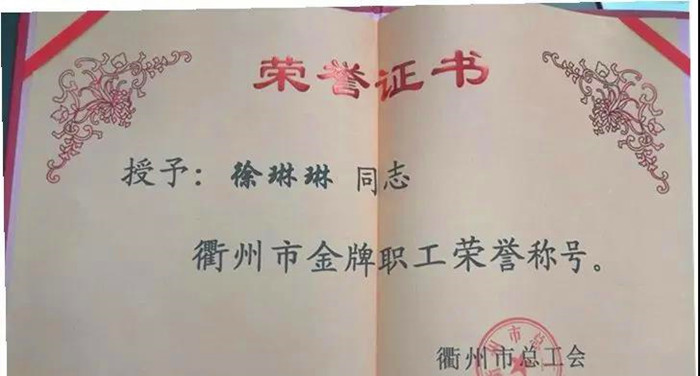 荣誉证书
授予：徐琳琳 同志
衢州市金牌职工荣誉称号。
衢州市总工会